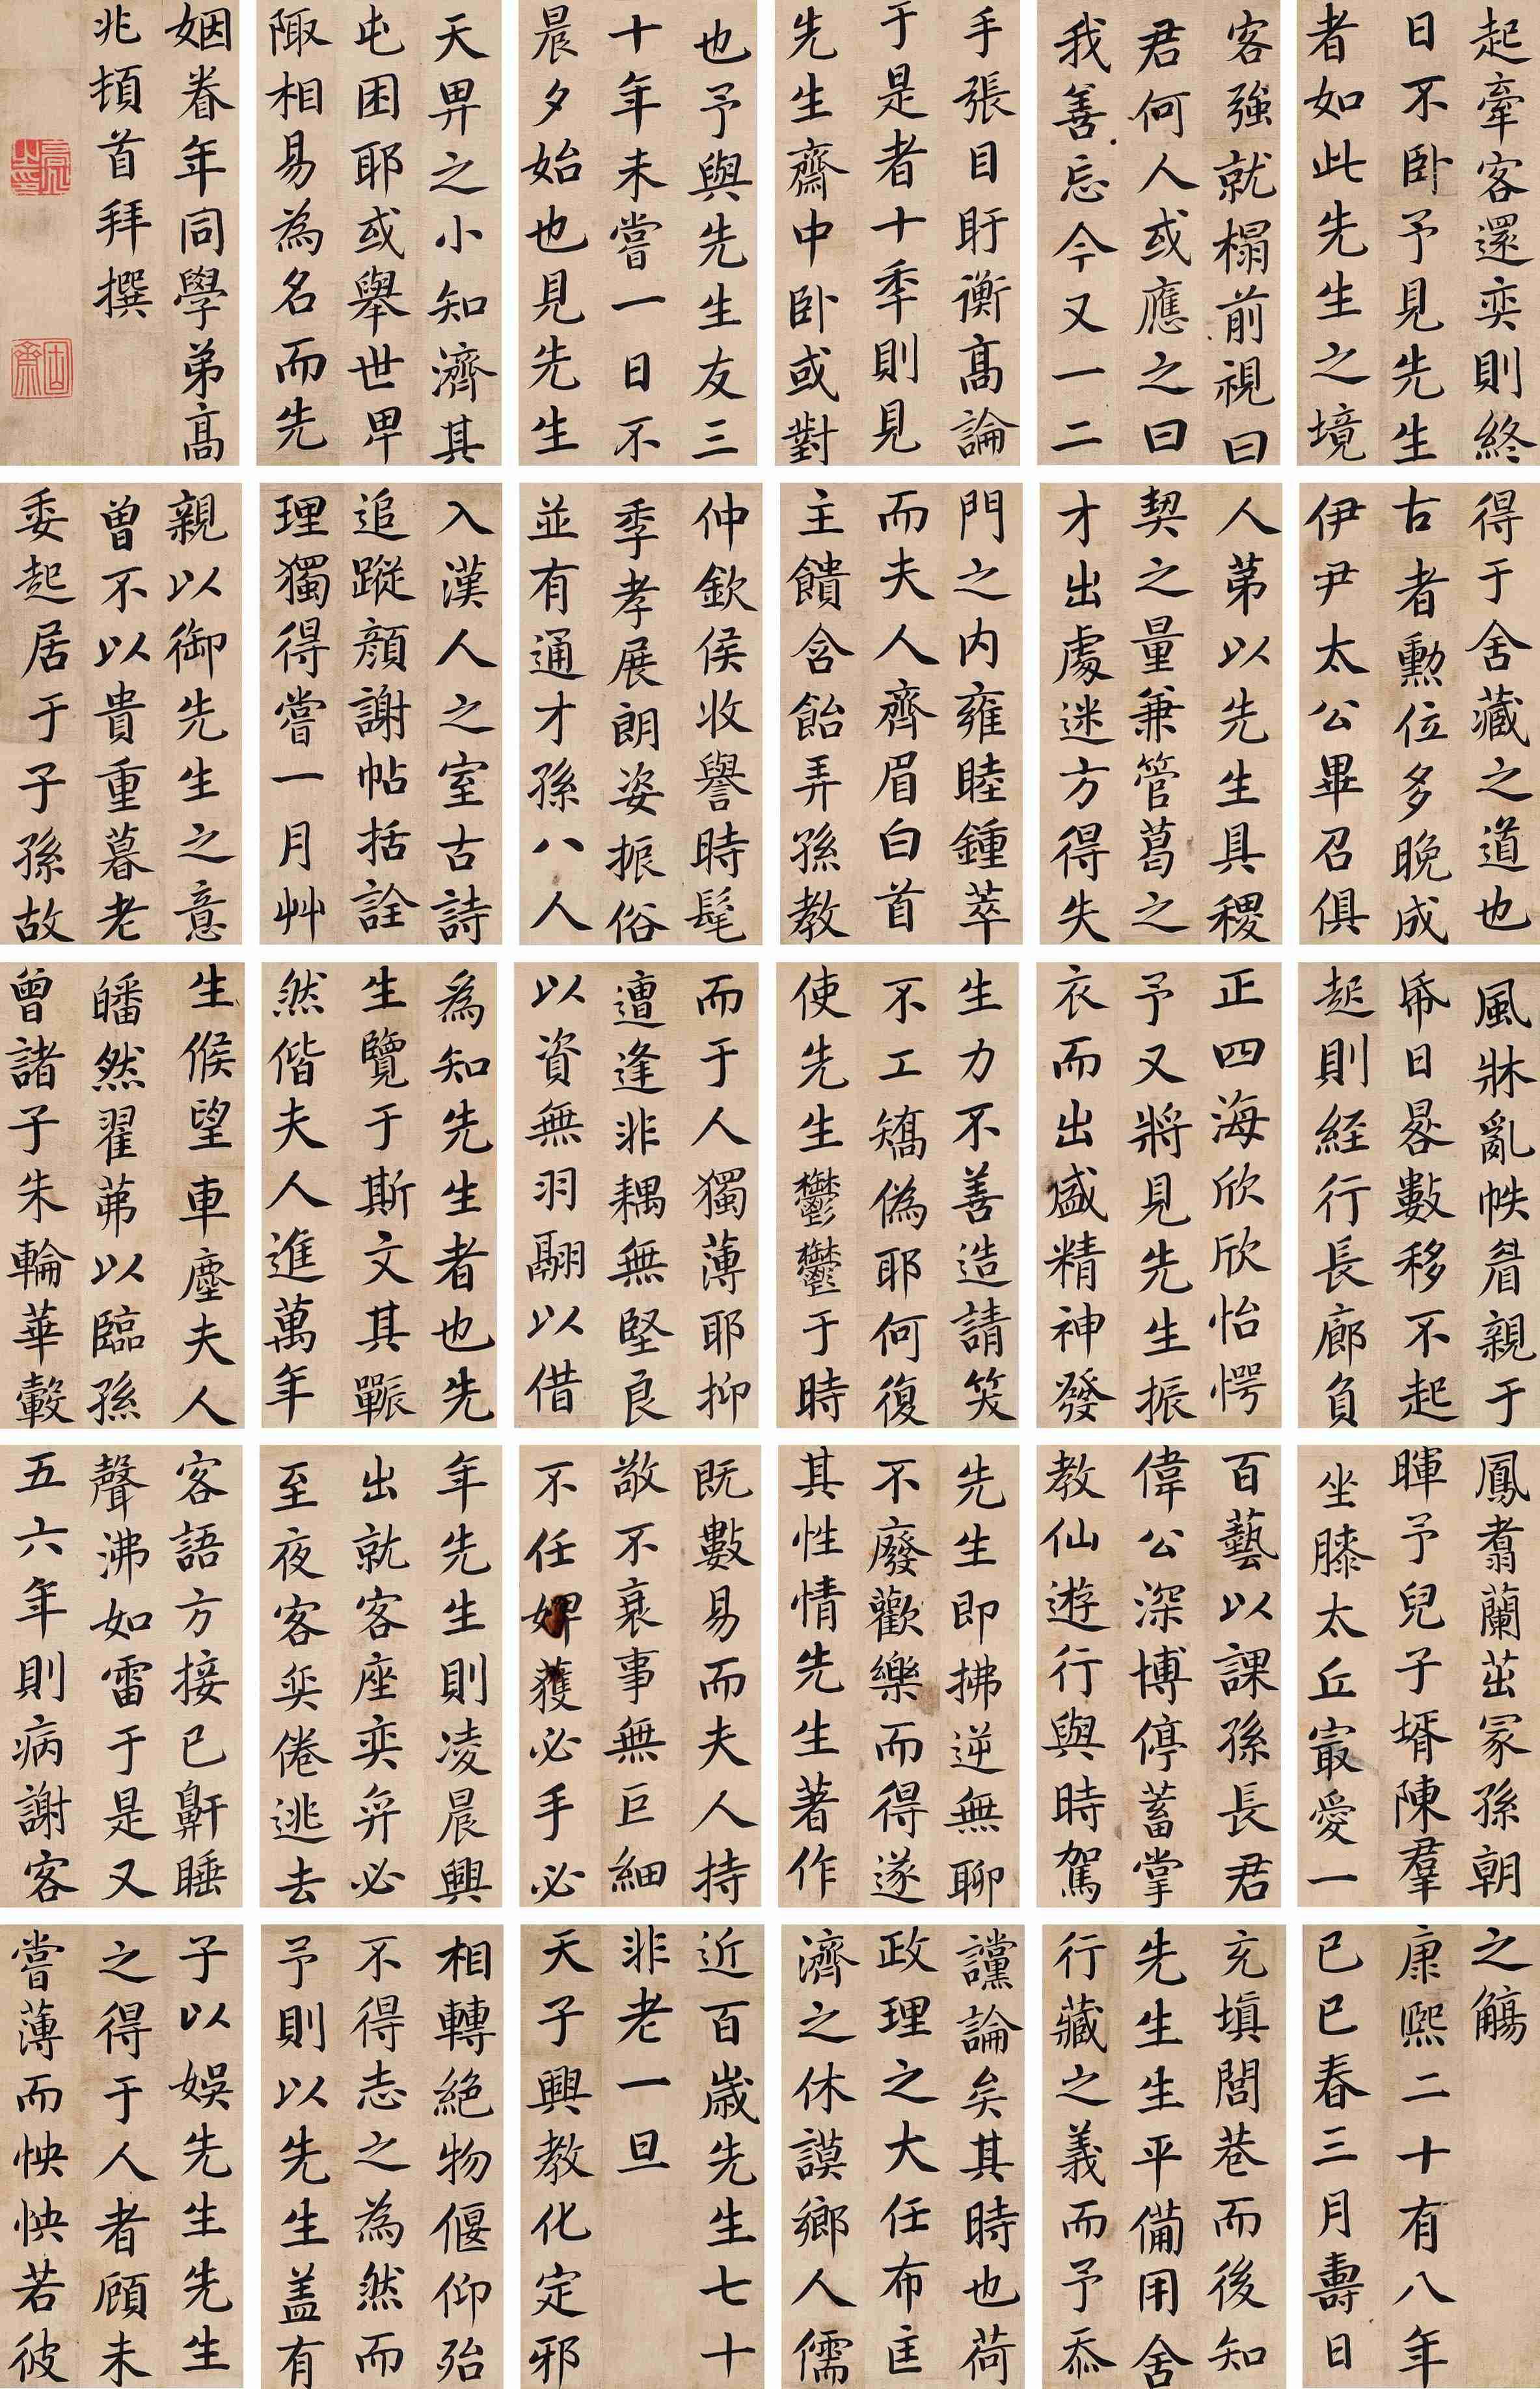 起牽客還奕則終
日不臥予見先生
者如此先生之境
客強就榻前視曰
君何人或應之曰
我善忘今又一二
手張目盱衡高論
于是者十季則見
先生齋中臥或對
也予與先生友三
十年未嘗一日不
晨夕始也見先生
天畀之小知濟其
屯困耶或舉世卑
陬相易為名而先
姻眷年同學弟高
兆頓首拜撰
得于舍藏之道也
古者勳位多晚成
伊尹太公畢召俱
人苐以先生具稷
契之量兼管葛之
才出處迷方得失
門之内雍睦鍾萃
而夫人齊眉白首
主饋含飴弄孫教
仲欽侯收譽時髦
季孝展朗姿振俗
並有通才孫八人
入漢人之室古詩
追蹤顔謝帖括詮
理獨得嘗一月艸
親以御先生之意
曾不以貴重暮老
委起居于子孫故
風牀亂帙眉親于
帋日晷數移不起
起則経行長廊負
正四海欣欣怡愕
予又將見先生振
衣而出盛精神發
生力不善造請笑
不工矯偽耶何復
使先生鬱鬱于時
而于人獨薄耶抑
遭逢非耦無堅良
以資無羽翮以借
為知先生者也先
生覽于斯文其囅
然偕夫人進萬年
生候望車塵夫人
皤然翟茀以臨孫
曾諸子朱輪華轂
鳳翥蘭茁冢孫朝
暉予兒子壻陳羣
坐膝太丘冣愛一
百藝以課孫長君
偉公深博停蓄掌
教仙遊行與時駕
先生即拂逆無聊
不廢歡樂而得遂
其性情先生著作
既數易而夫人持
敬不衰事無巨細
不任婢獲必手必
年先生則凌晨興
出就客座奕弈必
至夜客奕倦逃去
客語方接已鼾睡
聲沸如雷于是又
五六年則病謝客
之觴
康熙二十有八年
己巳春三月壽日
充填閭巷而後知
先生生平備用舍
行藏之義而予忝
讜論矣其時也荷
政理之大任布匡
濟之休謨鄉人儒
近百歲先生七十
非老一旦
天子興教化定邪
相轉絶物偃仰殆
不得志之為然而
予則以先生盖有
子以娛先生先生
之得于人者顧未
嘗薄而怏怏若彼